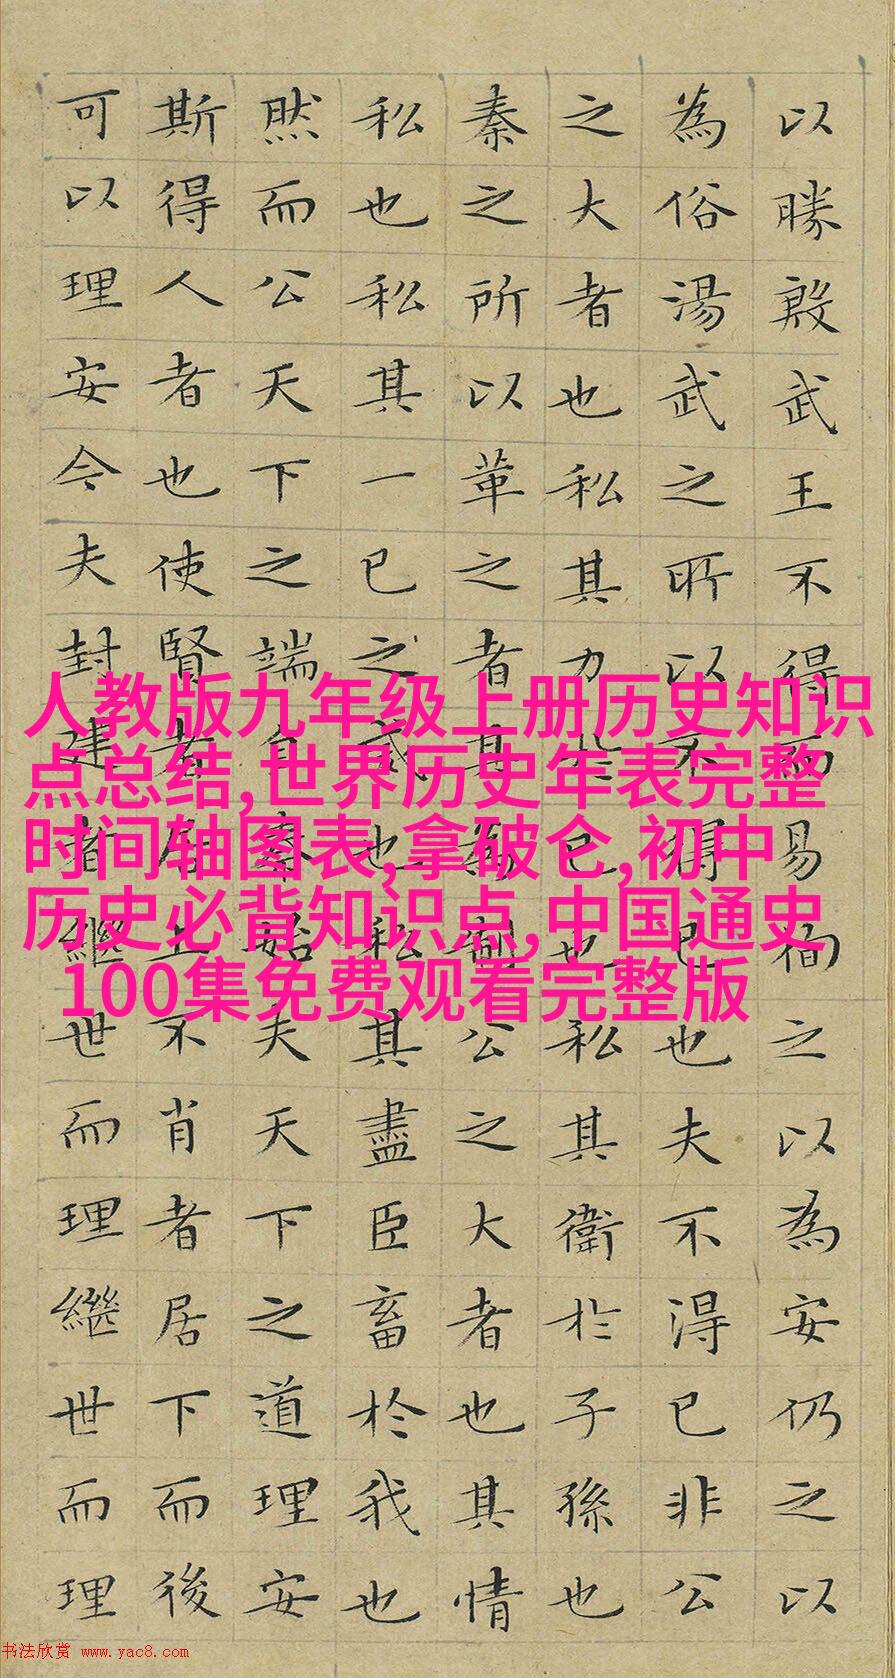 以勝殷武王不得而易徇之以為安仍之以
為俗湯武之所以不得已也夫不得已非公
之大者也私其力於己也私其衛於子孫也
秦之所以革之者其為制公之大者也其情
私也私其一己之威也私其盡臣畜於我也
然而公天下之端自秦始夫天下之道理安
斯得人者也使賢者居上不肖者居下而後
可以理安今夫封建者繼世而理繼世而理
人教版九年级上册历史知识
点总结,世界历史年表完整
时间轴图表,拿破仑,初中
历史必背知识点,中国通史
100集免费观看完整版
书法欣赏 www.yac8.com